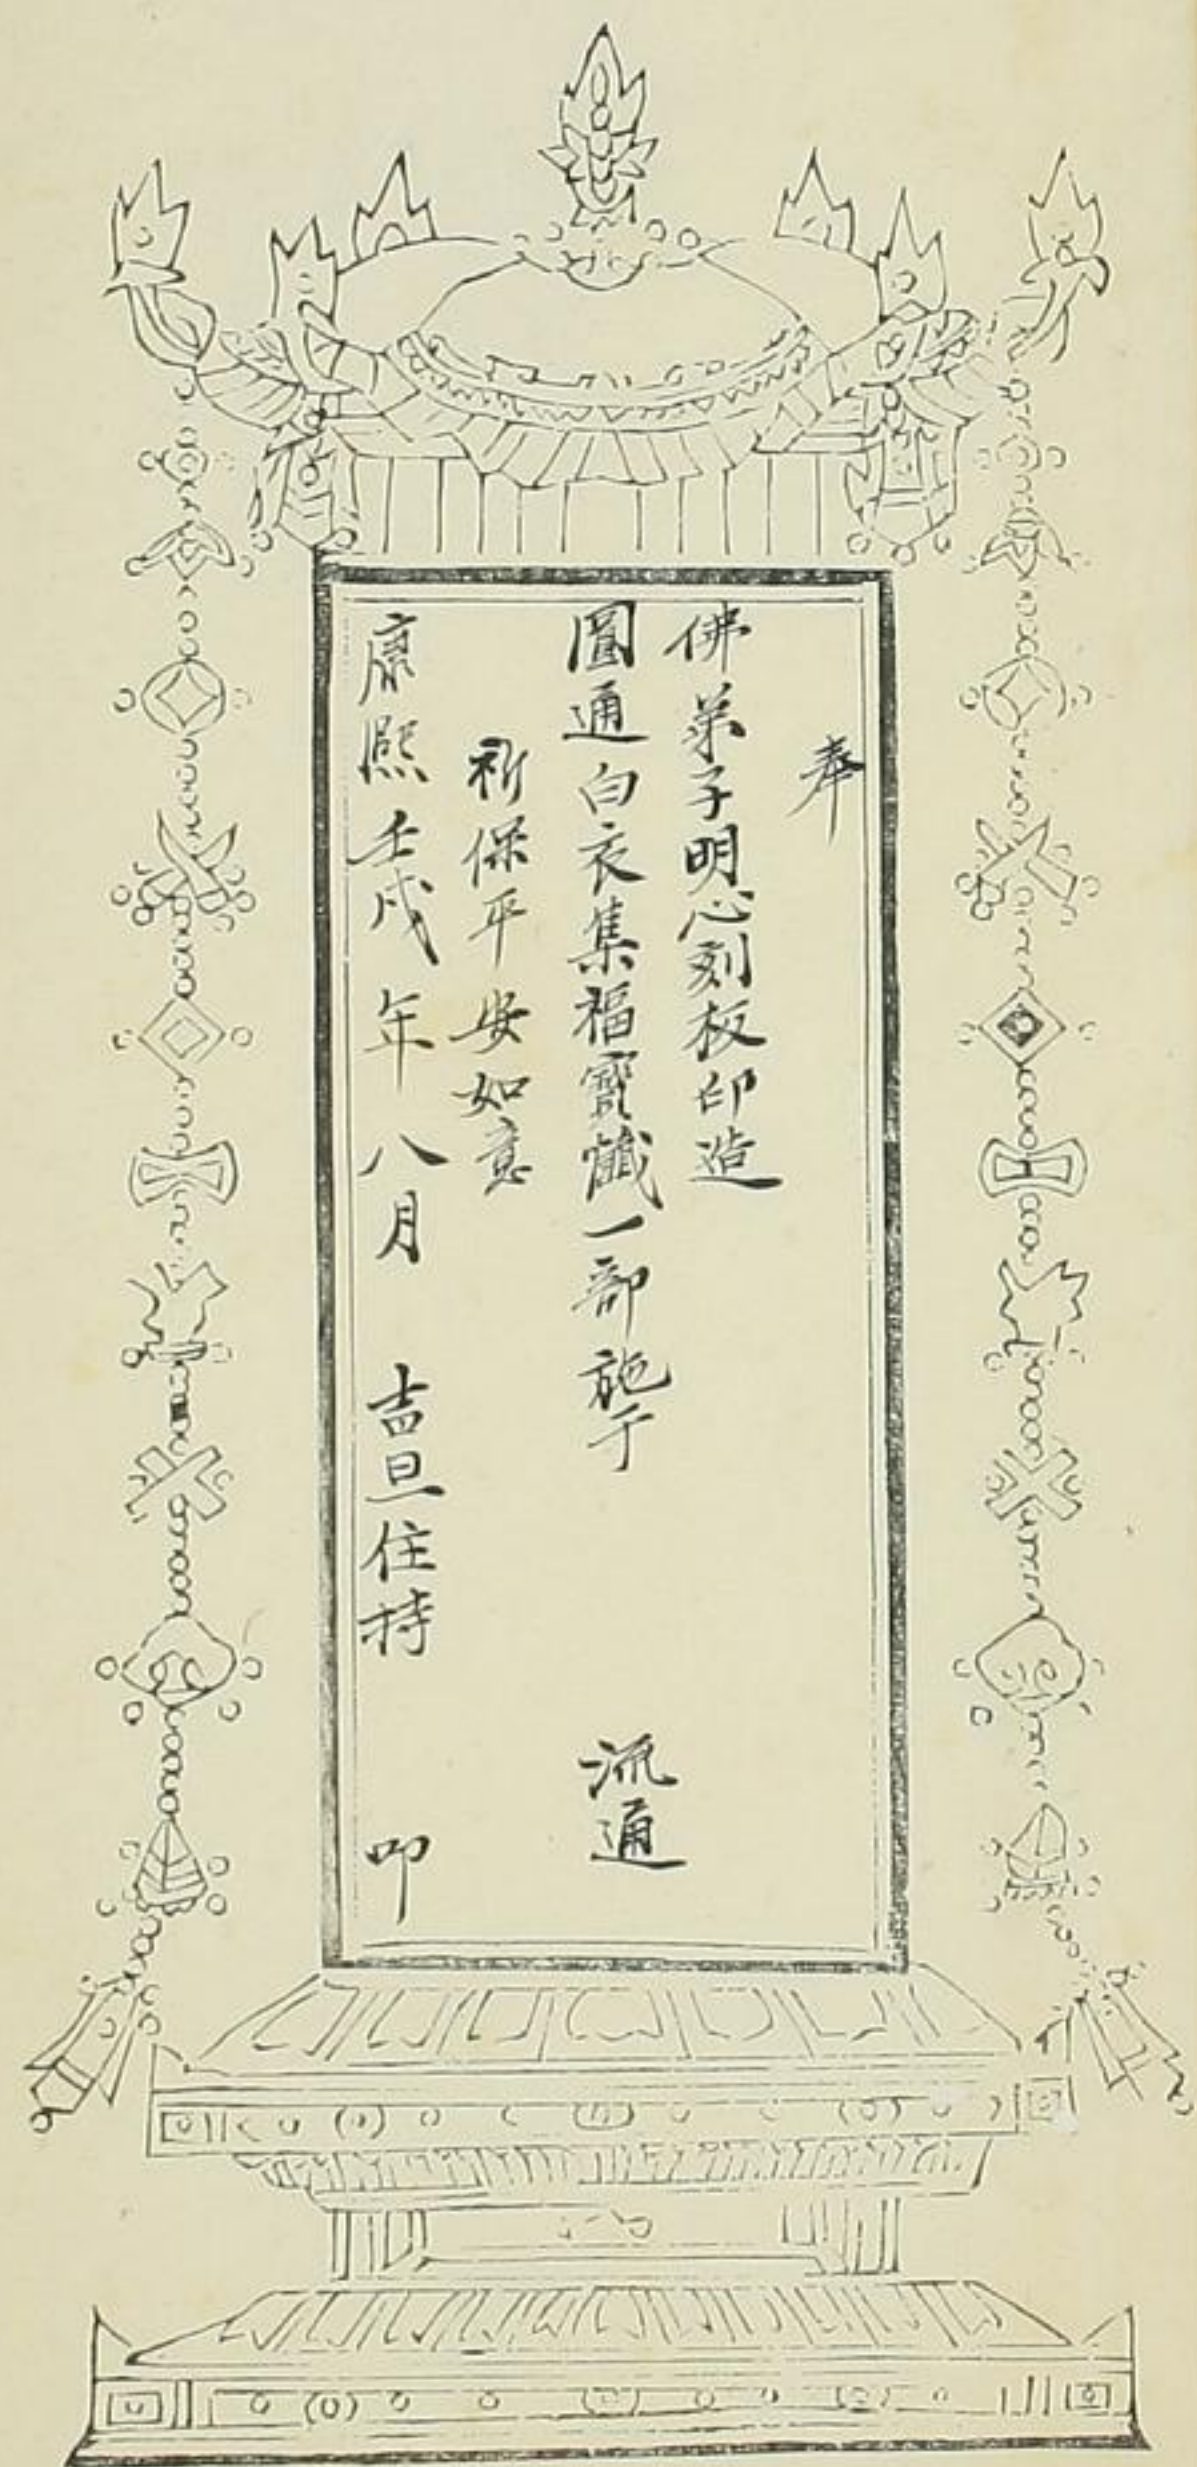 奉
佛弟子明心刻板印造
圓通白衣集福寳懺一部施于 流通
祈保平安如意
康熈壬戌年八月 吉旦住持 叩